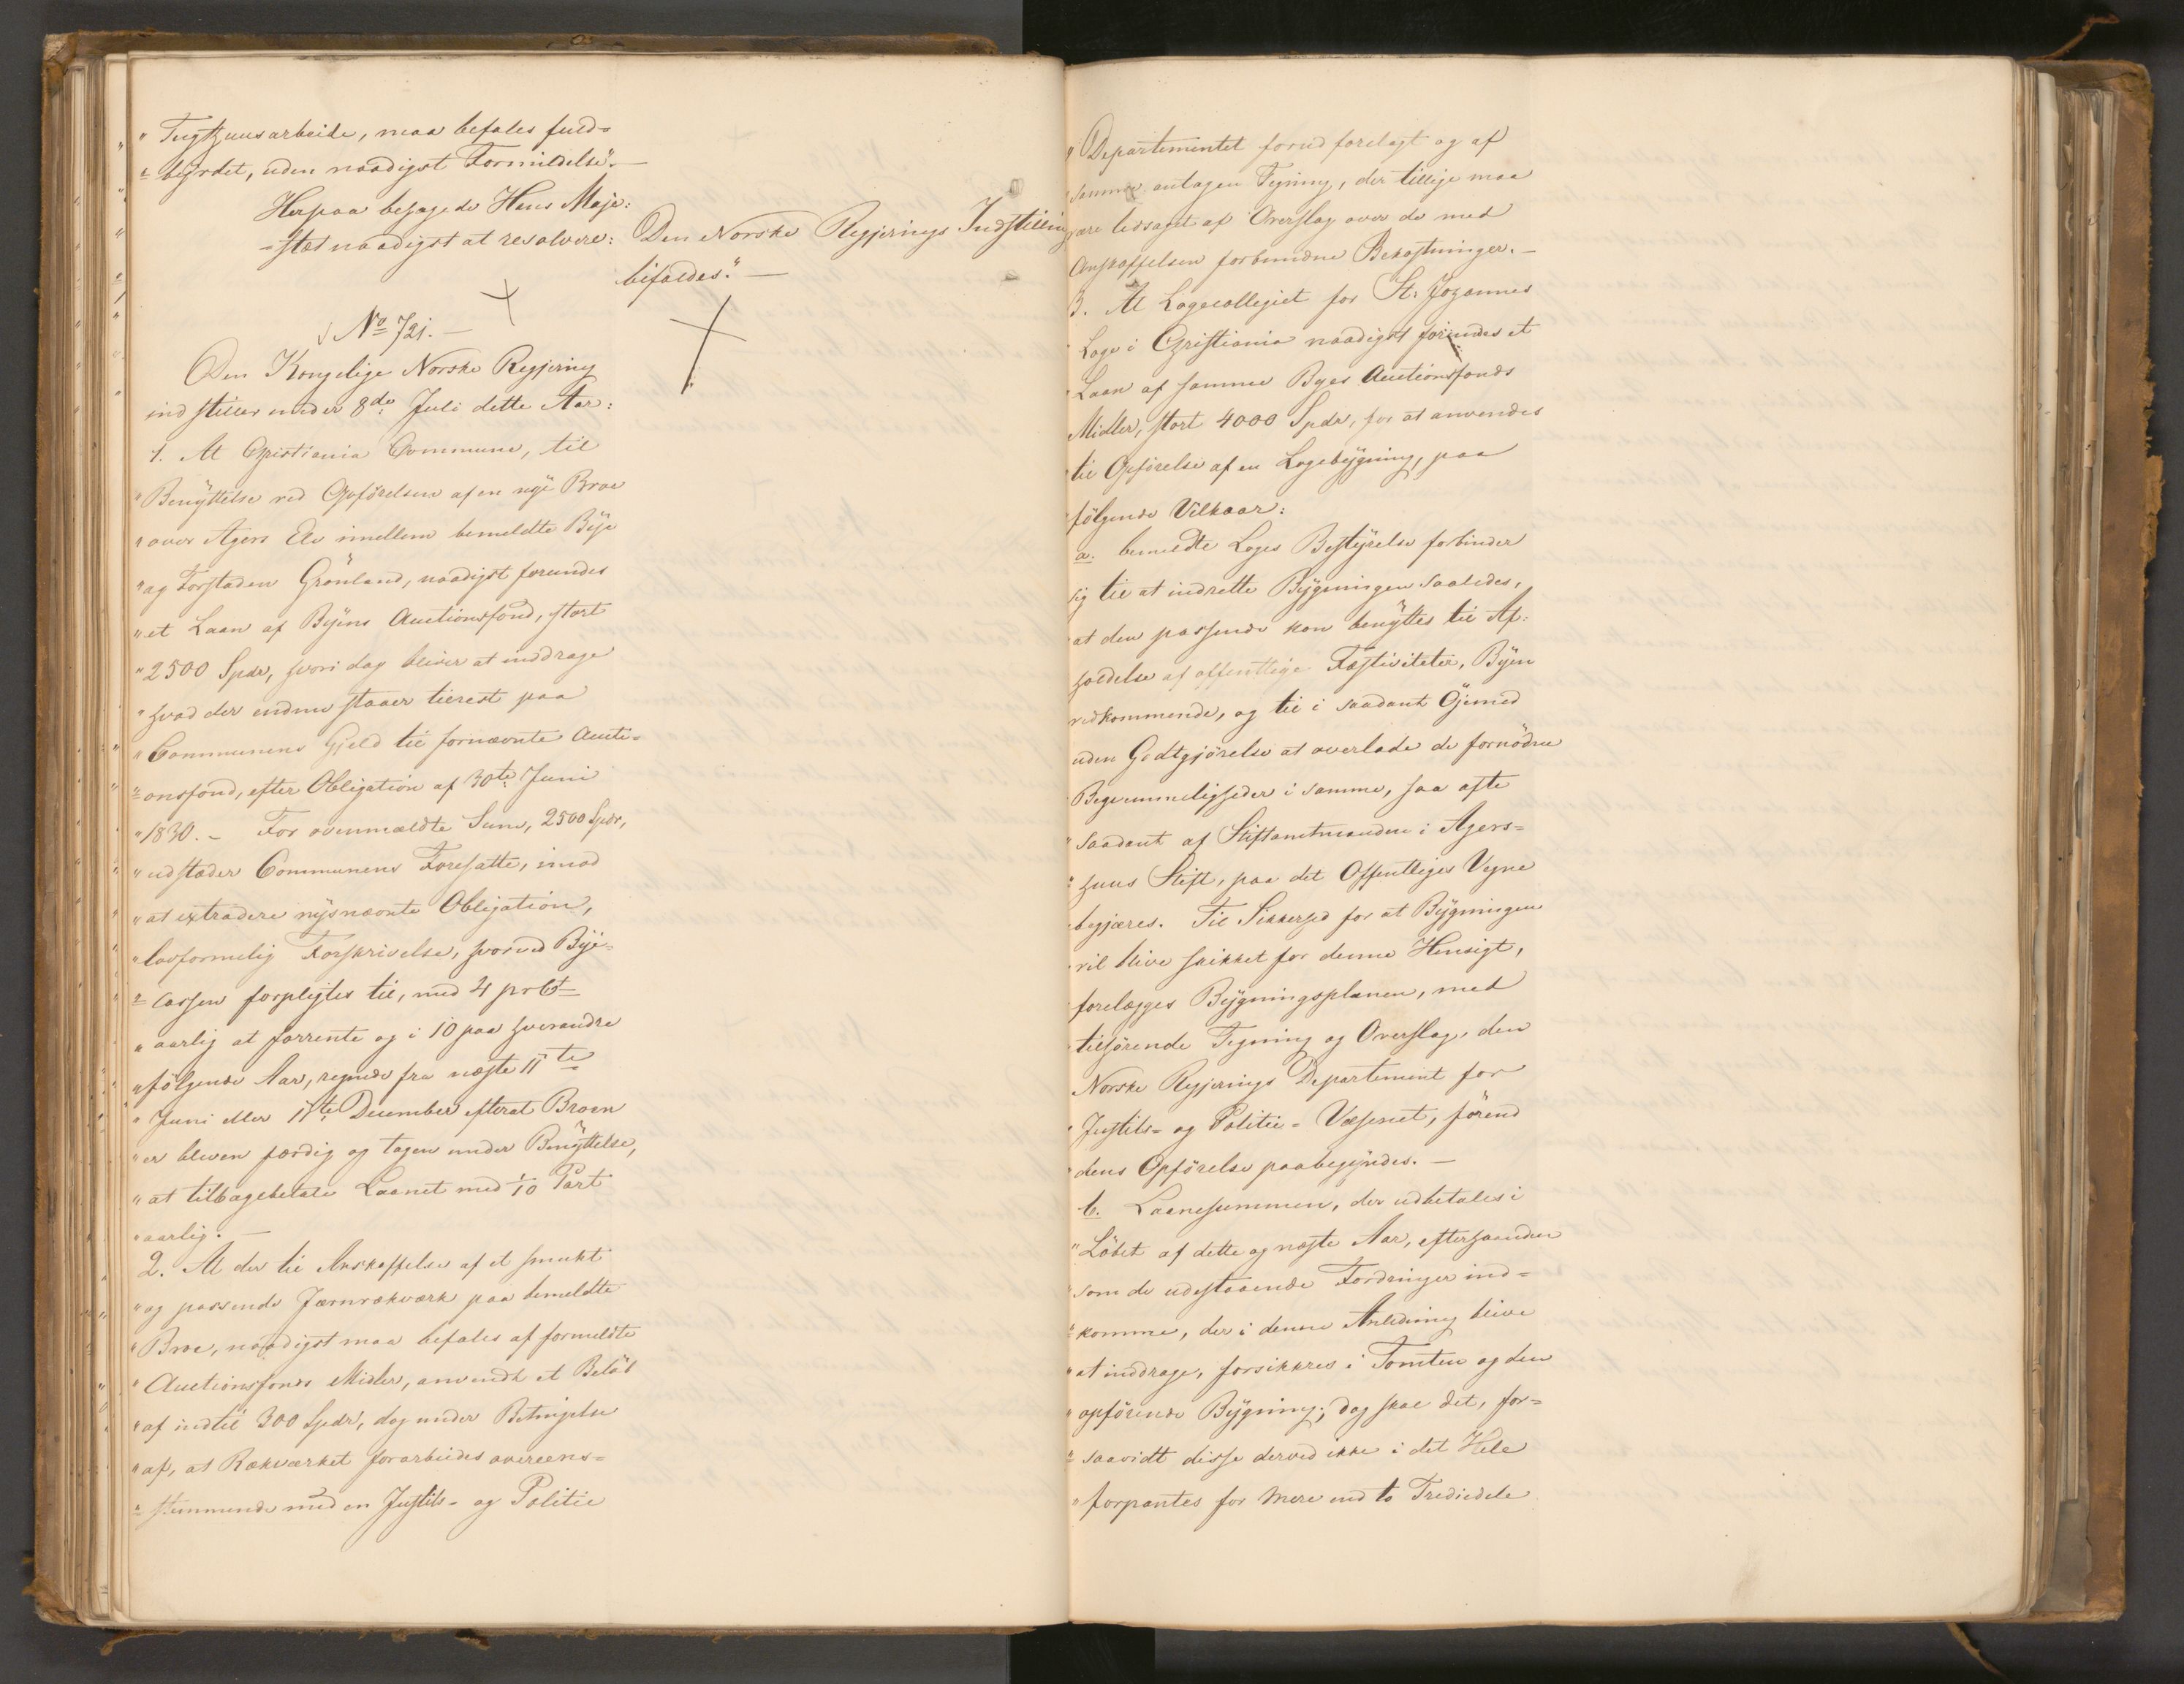 "Tugthuusarbeide, maa befales fuld=
"=byrdet, uden naadigst Formildelse".—
Herpaa behagede Hans Maje:
=stæt naadigst at resolvere: Den Norske Regjerings Indstilling
bifaldes."—
No 721.—
Den Kongelige Norske Regjering
indstiller under 8de Juli dette Aar:
1. At Christiania Commune, til
"Benyttelse ved Opförelsen af en nye Broe
"over Agers Elv imellem bemeldte Bye
"og Forstaden Grönland, naadigst forundes
"et Laan af Byens Auctionsfond, stort
"2500 Spdr, hvori dog bliver at inddrage
"hvad der endnu staaer tilrest paa
"Communens Gjeld til fornævnte Aucti=
"=onsfond, efter Obligation af 30te Juni
"1830.— For ovenmældte Sum, 2500 Spdr,
"udstæder Communens Foresatte, imod
"at extradere nysnævnte Obligation,
"lovformelig Forskrivelse, hvorved Bye=
"=cassen forpligtes til, med 4 prCt
"aarlig at forrente og i 10 paa hverandre
"fölgende Aar, regnede fra næste 11te
"Juni eller 11te December efterat Broen
"er bleven færdig og tagen under Benyttelse,
"at tilbagebetale Laanet med 1/10 Part
"aarlig.—
2. At der til Anskaffelse af et smukt
"og passende Jernrækværk paa bemeldte
"Broe, naadigst maa befales af formeldte
"Auctionsfonds Midler, anvendt et Belöb
"af indtil 300 Spdr, dog under Betingelse
"af, at Rækværket forarbeides overeens=
"=stemmende med en Justits- og Politie
"Departementet forud forelagt og af
samme antagen Tegning, der tillige maa
være ledsaget af Overslag over de med
Anskaffelsen forbundne Bekostninger.—
3. At Logecollegiet for St. Johannes
Loge i Christiania naadigst forundes et
"Laan af samme Byes Auctionsfonds
Midler, stort 4000 Spdr, for at anvendes
til Opförelse af en Logebygning, paa
fölgende Vilkaar:
a. bemeldte Loges Bestyrelse forbinder
sig til at indrette Bygningen saaledes,
at den passende kan benyttes til Af:
holdelse af offentlige Festiviteter, Byen
vedkommende, og til i saadant Öjemed
uden Godtgjörelse at overlade de fornödne
Beqvemmeligheder i samme, saa ofte
"saadant af Stiftamtmanden i Agers=
=huus Stift, paa det Offentliges Vegne
begjæres. Til Sikkerhed for at Bygningen
vil blive skikket for denne Hensigt,
forelægges Bygningsplanen, med
tilhörende Tegning og Overslag, den
Norske Regjerings Departement for
"Justits- og Politie-Væsenet, förend
"dens Opförelse paabegyndes.—
b. Laanesummen, der udbetales i
"Löbet af dette og næste Aar, efterhaanden
"som de udestaaende Fordringer ind=
"=komme, der i denne Anledning blive
"at inddrage, forsikkres i Tomten og den
"opförende Bygning; dog skal det, for=
"=saavidt disse derved ikke i det Hele
"forpantes for mere end to Trediedele